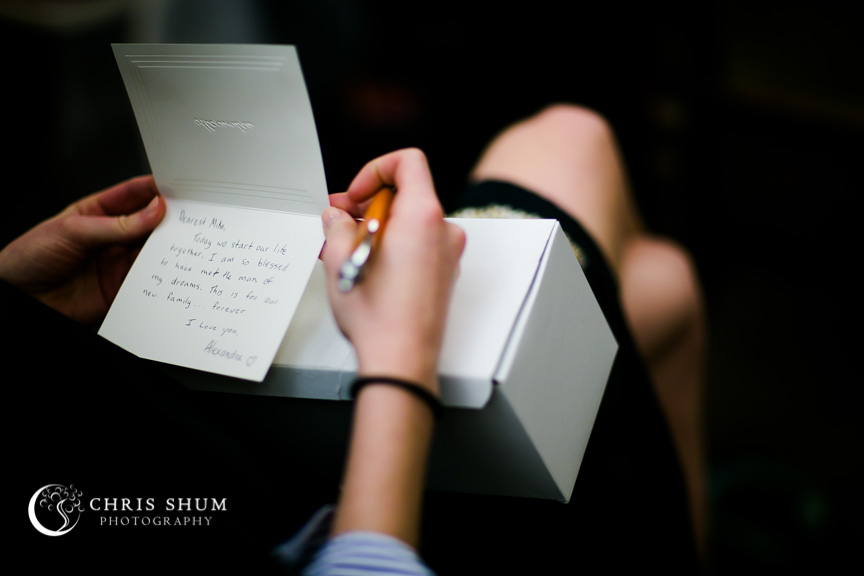 Dearest Mike,
Today we start our life
together. I am so blessed
to have met the man of
my dreams. This is for our
new family... forever.
I love you,
Alexandra ♡
CHRIS SHUM
PHOTOGRAPHY